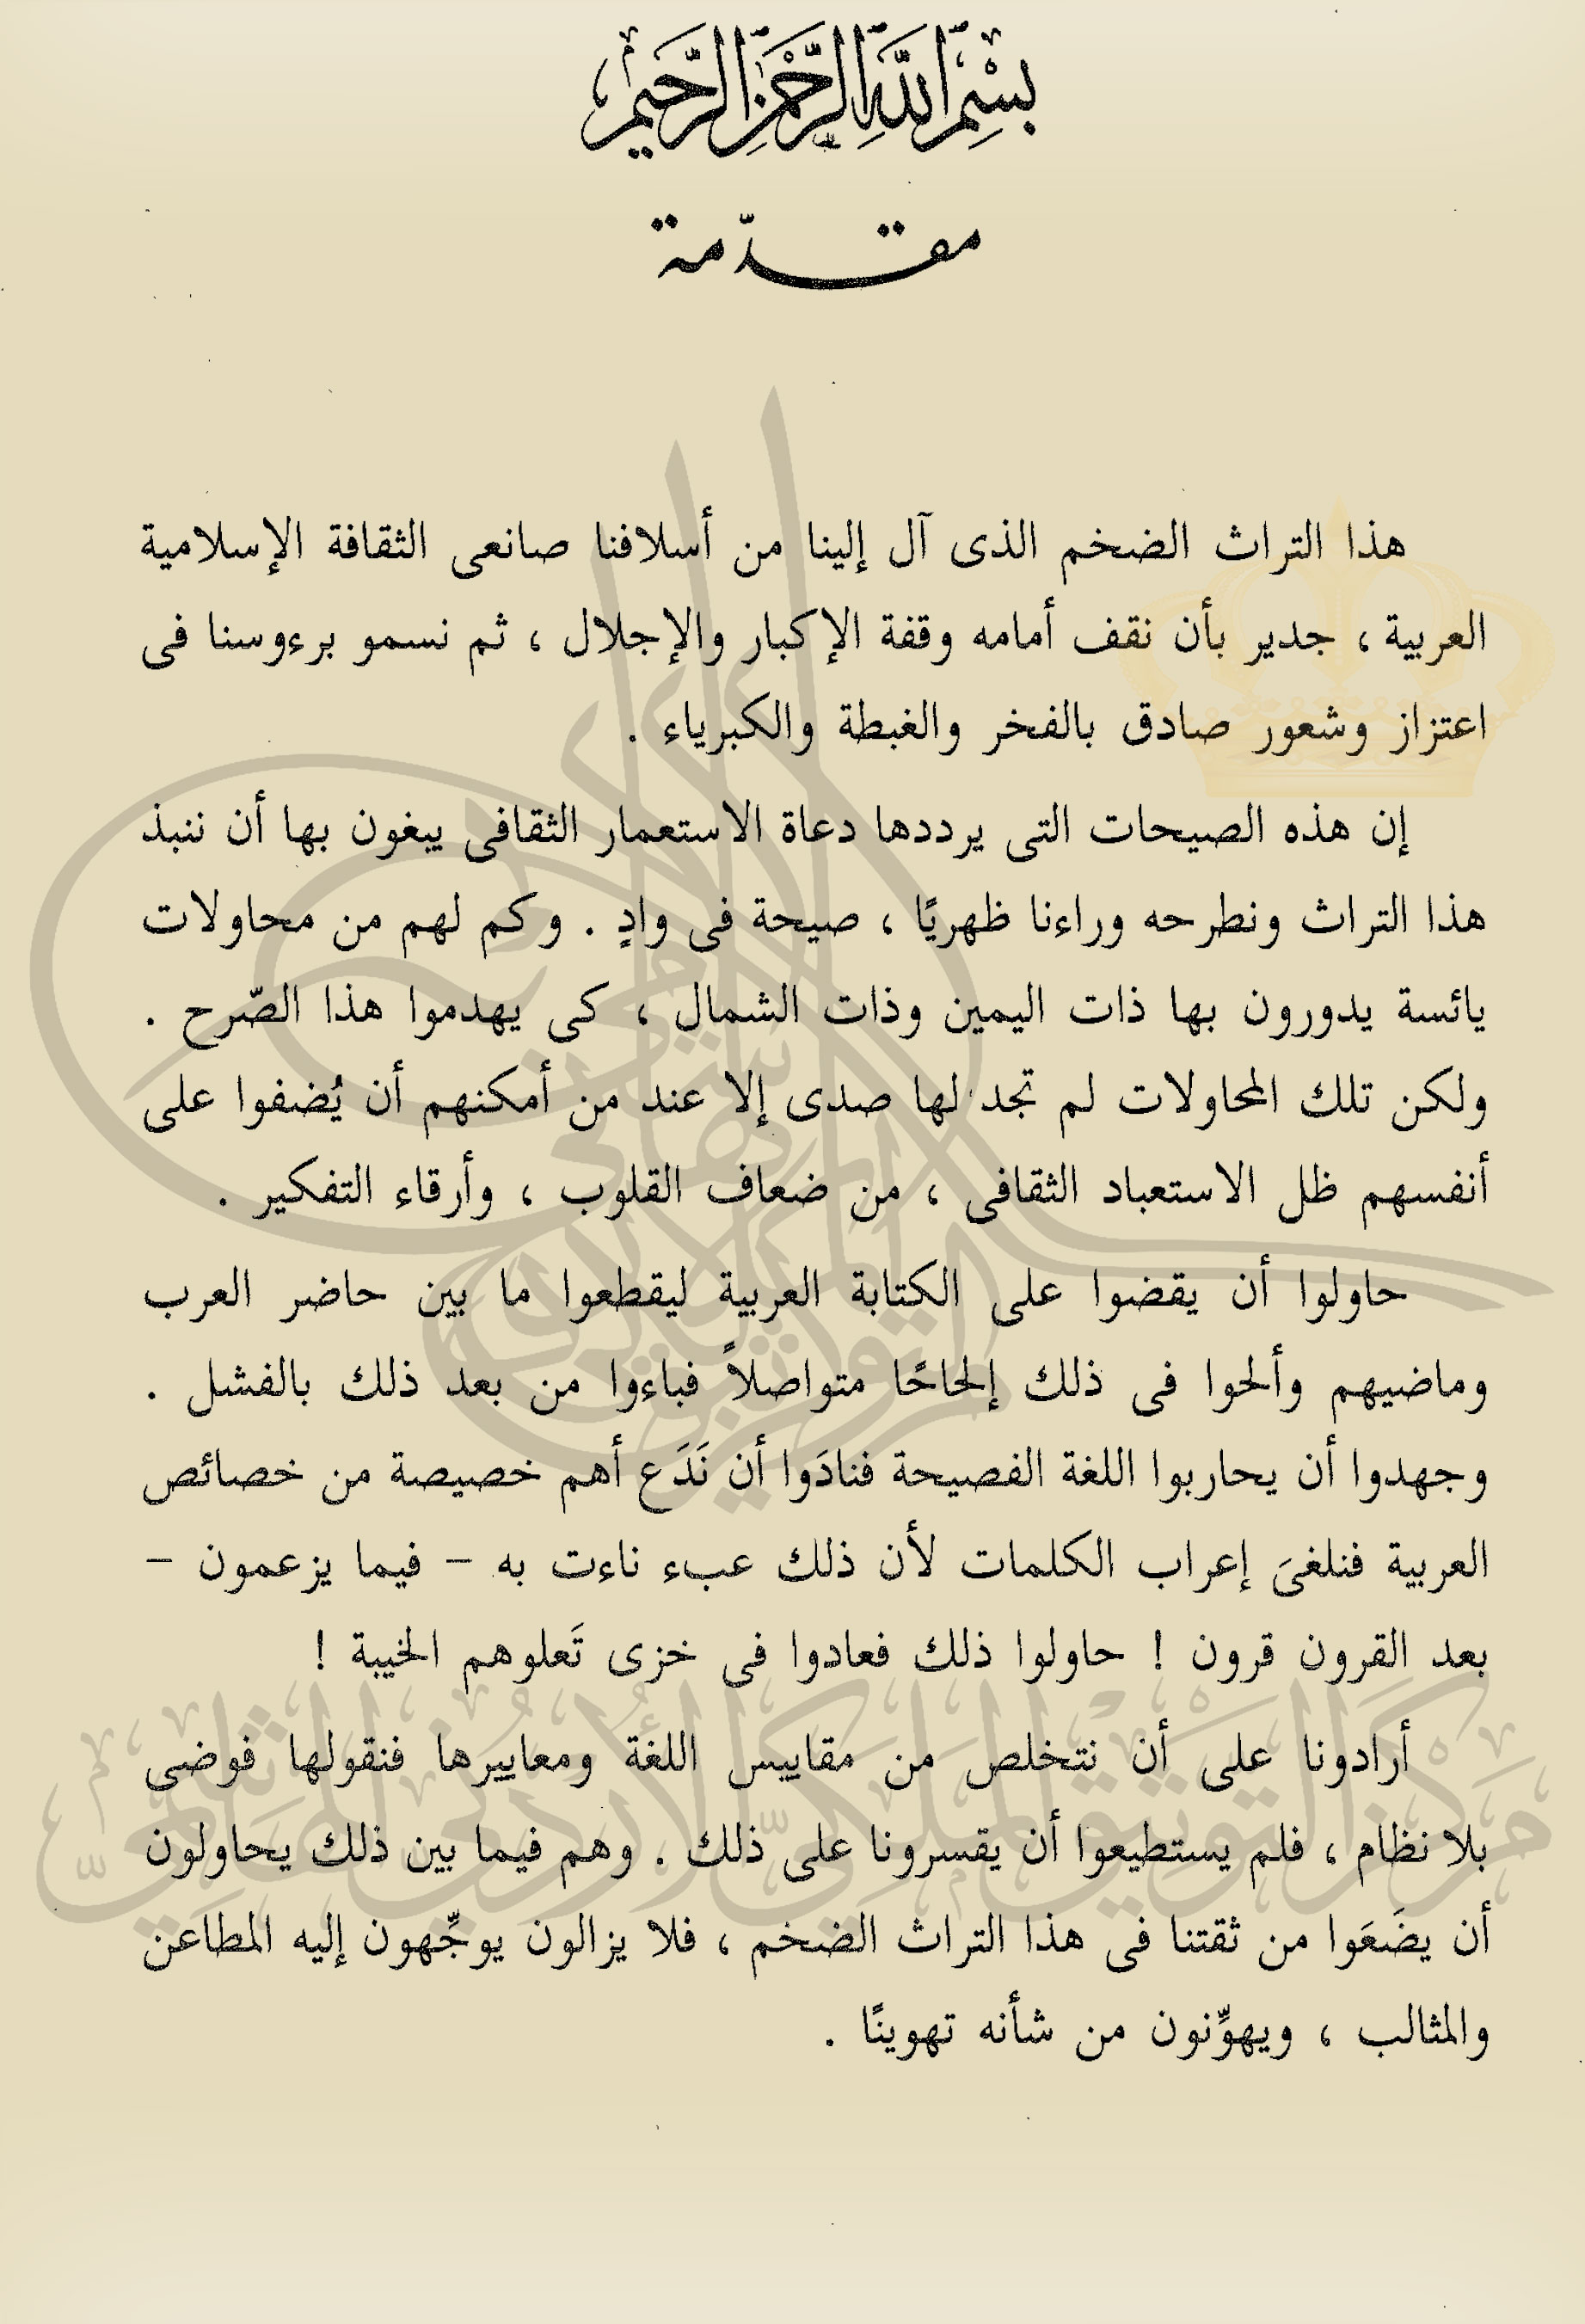 بسم الله الرحمن الرحيم
مقـدّمة
هذا التراث الضخم الذى آل إلينا من أسلافنا صانعى الثقافة الإسلامية
العربية ، جدير بأن نقف أمامه وقفة الإكبار والإجلال ، ثم نسمو برءوسنا فى
اعتزاز وشعور صادق بالفخر والغبطة والكبرياء .
إن هذه الصيحات التى يرددها دعاة الاستعمار الثقافى يبغون بها أن ننبذ
هذا التراث ونطرحه وراءنا ظهريًا ، صيحة فى وادٍ . وكم لهم من محاولات
يائسة يدورون بها ذات اليمين وذات الشمال ، كى يهدموا هذا الصّرح .
ولكن تلك المحاولات لم تجد لها صدى إلا عند من أمكنهم أن يُضفوا على
أنفسهم ظل الاستعباد الثقافى ، من ضعاف القلوب ، وأرقاء التفكير .
حاولوا أن يقضوا على الكتابة العربية ليقطعوا ما بين حاضر العرب
وماضيهم وألحوا فى ذلك إلحاحًا متواصلاً فباءوا من بعد ذلك بالفشل .
وجهدوا أن يحاربوا اللغة الفصيحة فنادَوا أن نَدَع أهم خصيصة من خصائص
العربية فنلغىَ إعراب الكلمات لأن ذلك عبء ناءت به – فيما يزعمون –
بعد القرون قرون ! حاولوا ذلك فعادوا فى خزى تَعلوهم الخيبة !
أرادونا على أن نتخلص من مقاييس اللغة ومعاييرها فنقولها فوضى
بلا نظام ، فلم يستطيعوا أن يقسرونا على ذلك . وهم فيما بين ذلك يحاولون
أن يضَعَوا من ثقتنا فى هذا التراث الضخم ، فلا يزالون يوجِّهون إليه المطاعن
والمثالب ، ويهوِّنون من شأنه تهوينًا .
مركز التوثيق الملكي الأردني الهاشمي